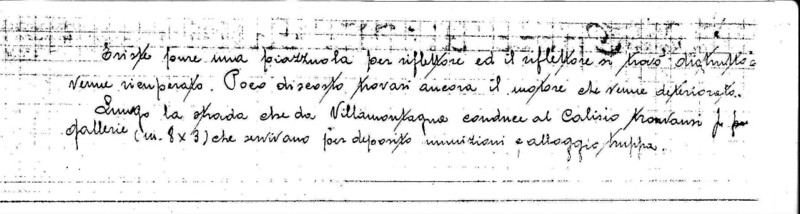 Esiste pure una piazzuola per riflettore ed il riflettore si trovò distrutto e
venne ricuperato. Poco discosto trovasi ancora il motore che venne deteriorato.
Lungo la strada che da Villamontagna conduce al Calisio trovansi
gallerie (m. 8 x 3) che servivano per deposito munizioni e alloggio truppa.